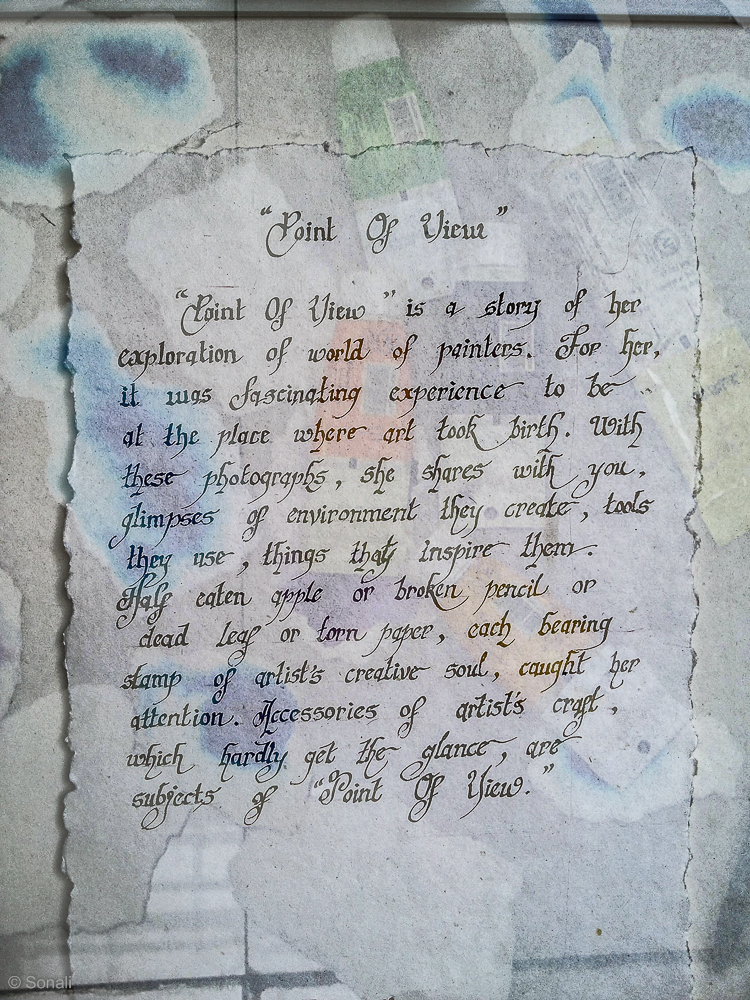 "Point Of View"
"Point Of View" is a story of her
exploration of world of painters. For her,
it was fascinating experience to be
at the place where art took birth. With
these photographs, she shares with you,
glimpses of environment they create, tools
they use, things that inspire them.
Half eaten apple or broken pencil or
dead leaf or torn paper, each bearing
stamp of artist's creative soul, caught her
attention. Accessories of artist's craft,
which hardly get the glance, are
subjects of "Point Of View."
© Sonali